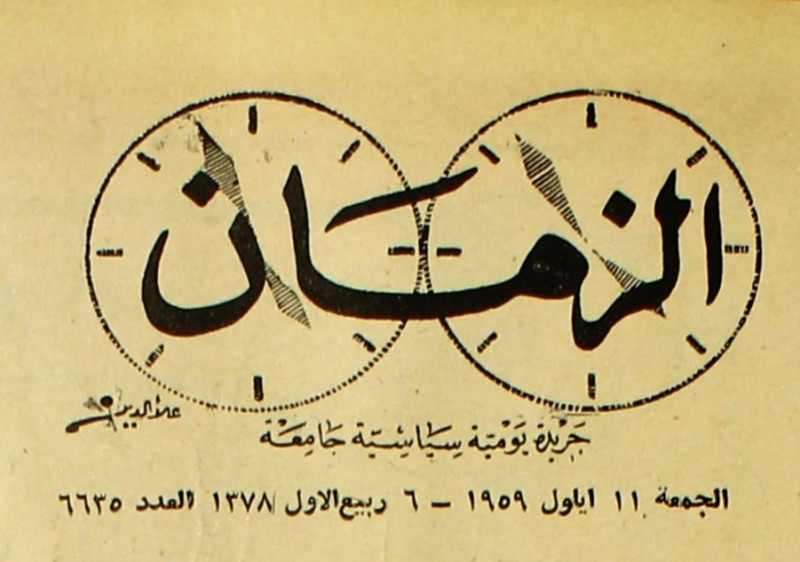 الزمان
علاءالدين
جريدة يومية سياسية جامعة
الجمعة ١١ اياول ١٩٥٩ – ٦ ربيع الاول ١٣٧٨ العدد ٦٦٣٥